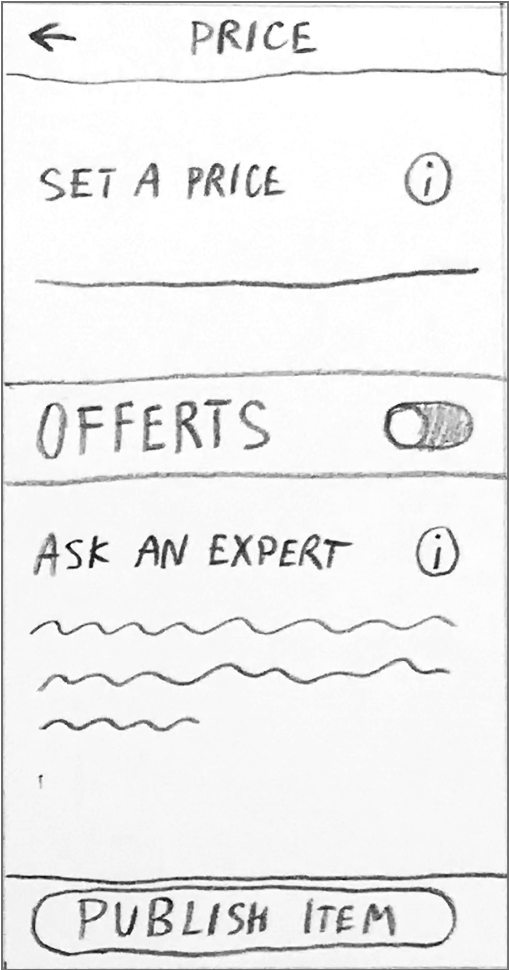 PRICE
SET A PRICE i
OFFERTS
ASK AN EXPERT i
PUBLISH ITEM